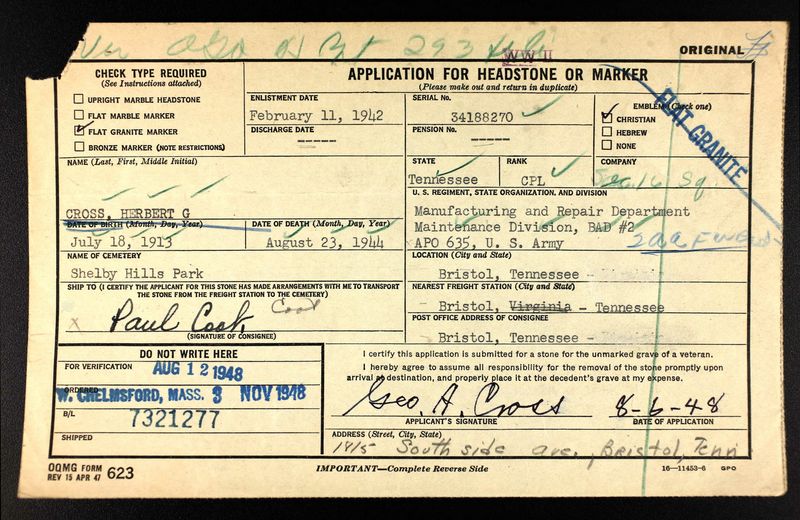 293
WW II
ORIGINAL
CHECK TYPE REQUIRED
(See Instructions attached)
UPRIGHT MARBLE HEADSTONE
FLAT MARBLE MARKER
FLAT GRANITE MARKER
BRONZE MARKER (NOTE RESTRICTIONS)
APPLICATION FOR HEADSTONE OR MARKER
(Please make out and return in duplicate)
ENLISTMENT DATE
February 11, 1942
DISCHARGE DATE
----
SERIAL No.
34188270
PENSION No.
----
EMBLEM (Check one)
CHRISTIAN
HEBREW
NONE
FLAT GRANITE
NAME (Last, First, Middle Initial)
CROSS, HERBERT G
STATE
Tennessee
RANK
CPL
COMPANY
Sq.
U. S. REGIMENT, STATE ORGANIZATION, AND DIVISION
Manufacturing and Repair Department
Maintenance Division, BAD #2
APO 635, U. S. Army
DATE OF BIRTH (Month, Day, Year)
July 18, 1913
DATE OF DEATH (Month, Day, Year)
August 23, 1944
NAME OF CEMETERY
Shelby Hills Park
LOCATION (City and State)
Bristol, Tennessee -
SHIP TO (I CERTIFY THE APPLICANT FOR THIS STONE HAS MADE ARRANGEMENTS WITH ME TO TRANSPORT
THE STONE FROM THE FREIGHT STATION TO THE CEMETERY)
x Paul Cook
(SIGNATURE OF CONSIGNEE)
NEAREST FREIGHT STATION (City and State)
Bristol, Virginia - Tennessee
POST OFFICE ADDRESS OF CONSIGNEE
Bristol, Tennessee -
DO NOT WRITE HERE
FOR VERIFICATION
AUG 12 1948
ORDERED
W. CHELMSFORD, MASS. 3 NOV 1948
B/L
7321277
SHIPPED
I certify this application is submitted for a stone for the unmarked grave of a veteran.
I hereby agree to assume all responsibility for the removal of the stone promptly upon
arrival at destination, and properly place it at the decedent's grave at my expense.
Geo. A. Cross 8-6-48
APPLICANT'S SIGNATURE
DATE OF APPLICATION
ADDRESS (Street, City, State)
1815 South side ave., Bristol, Tenn
OQMG FORM
REV 15 APR 47 623
IMPORTANT—Complete Reverse Side
16—11453-6 GPO